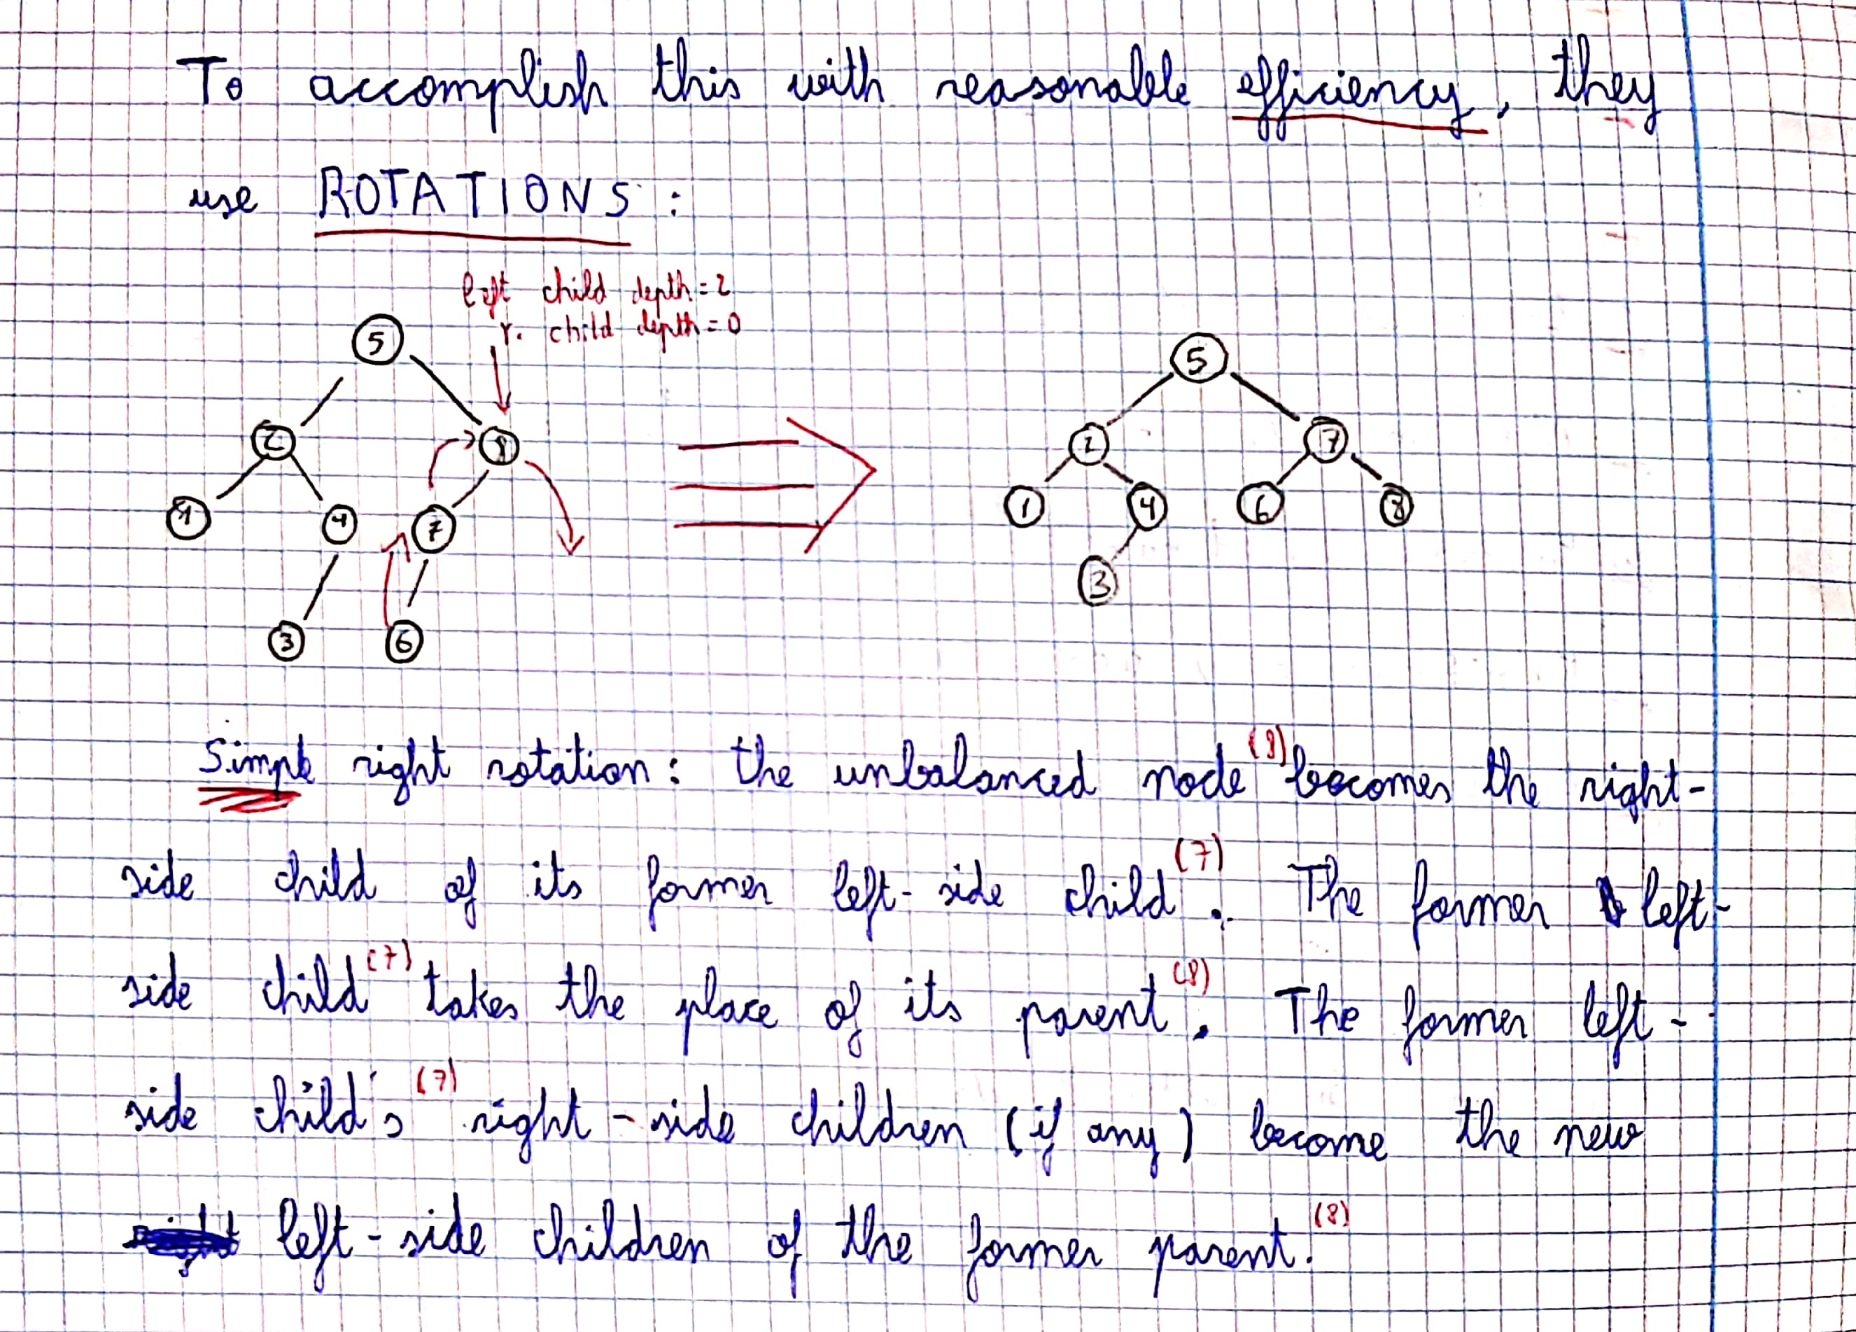 To accomplish this with reasonable efficiency, they
use ROTATIONS:
left child depth=2
r. child depth=0
5
5
2
8
2
7
1
4
7
1
4
6
8
3
3
6
Simple right rotation: the unbalanced node (8) becomes the right-
side child of its former left-side child (7). The former left-
side child (7) takes the place of its parent (8). The former left-
side child's (7) right-side children (if any) become the new
left-side children of the former parent. (8)